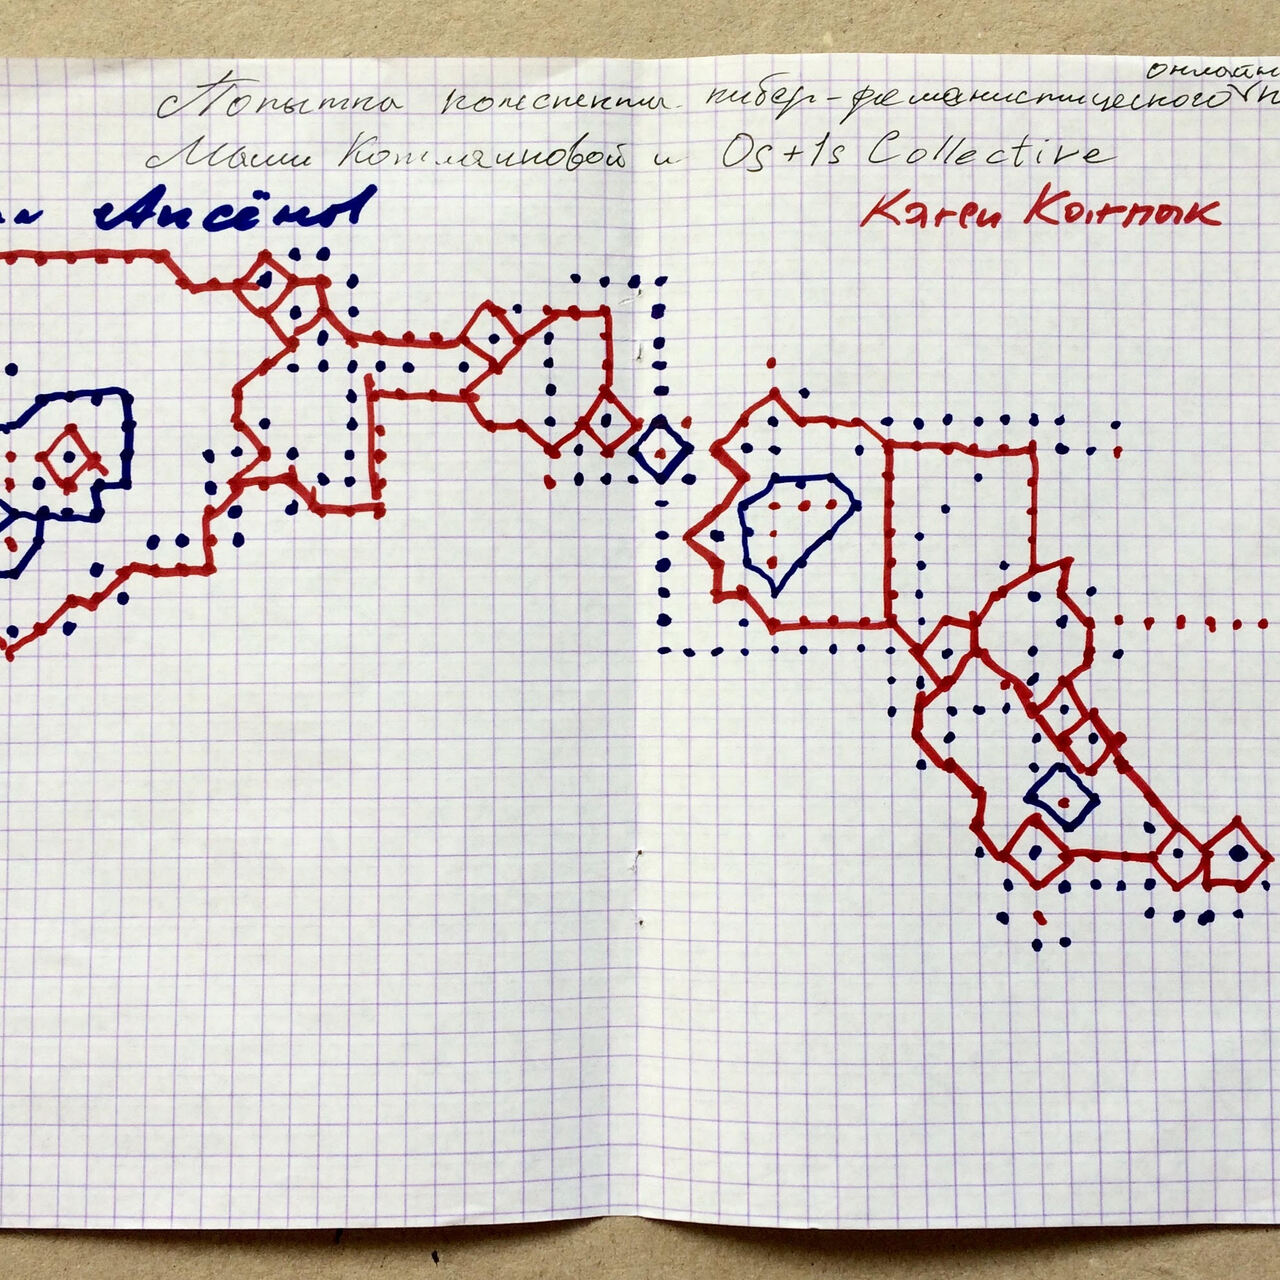 Попытка конспекта кибер-феминистического онлайн
Маши Котляиновой и 0s+1s Collective
Аксёнов
Кэтси Колпок